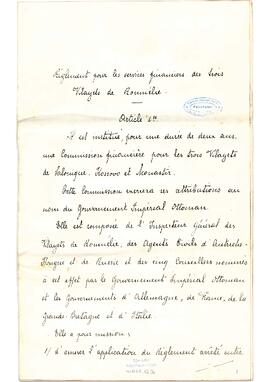 Règlement pour les services financiers des trois
Vilayets de Roumélie.
Article 1er
Il est institué, pour une durée de deux ans,
une Commission financière pour les trois Vilayets
de Salonique, Kossovo et Monastir.
Cette Commission exercera ses attributions au
nom du Gouvernement Impérial Ottoman
Elle est composée de l'Inspecteur Général des
Vilayets de Roumélie, des Agents Civils d'Autriche-
Hongrie et de Russie et des cinq Conseillers nommés
à cet effet par le Gouvernement Impérial Ottoman
et les Gouvernements d'Allemagne, de France, de la
Grande-Bretagne et d'Italie.
Elle a pour mission:
1/ d'assurer l'application du Règlement arrêté entre